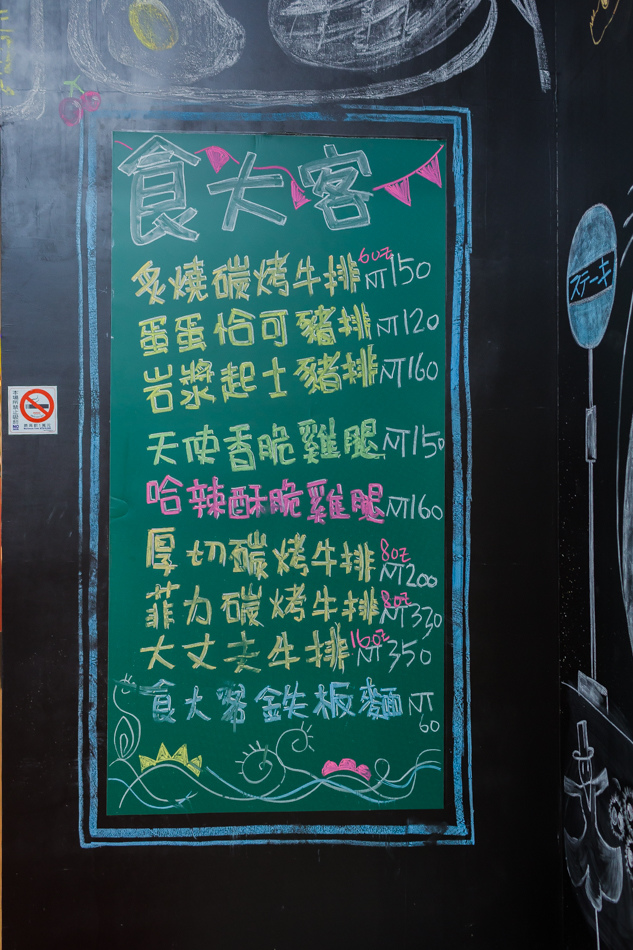 食大客
炙燒碳烤牛排 6oz NT150
蛋蛋恰可豬排 NT120
岩漿起士豬排 NT160
天使香脆雞腿 NT150
哈辣酥脆雞腿 NT160
厚切碳烤牛排 8oz NT200
菲力碳烤牛排 8oz NT330
大丈夫牛排 16oz NT350
食大客鉄板麵 NT60
ステーキ